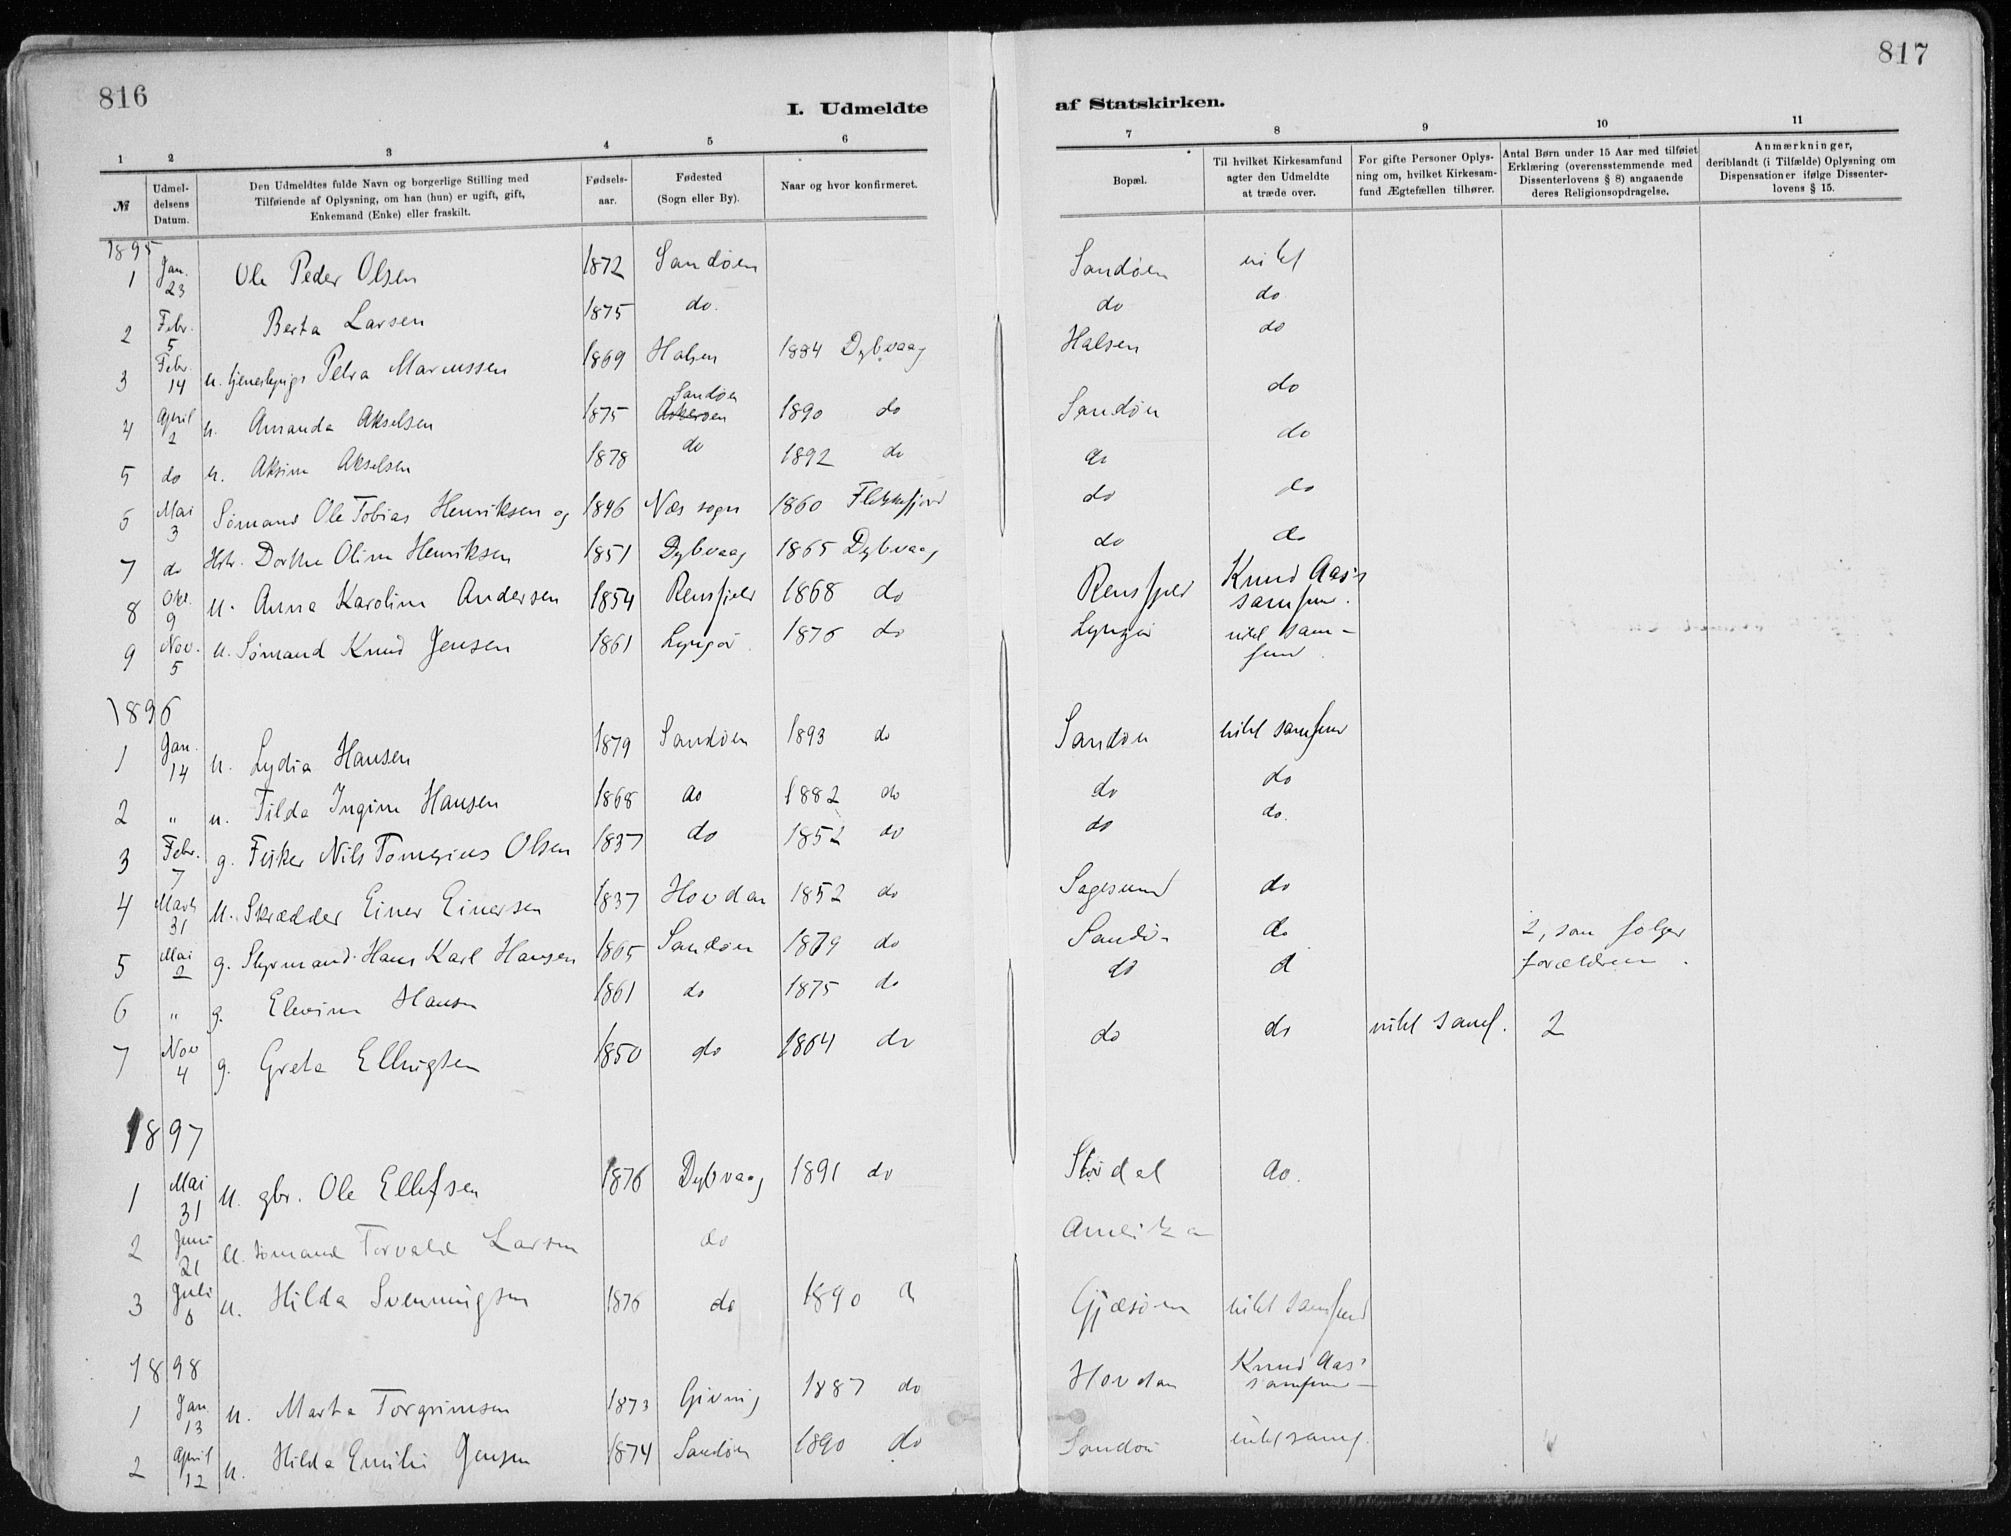 816
817
I. Udmeldte af Statskirken.
1 2 3 4 5 6 7 8 9 10 11
№
Udmeldelsens Datum.
Den Udmeldtes fulde Navn og borgerlige Stilling med Tilføiende af Oplysning, om han (hun) er ugift, gift, Enkemand (Enke) eller fraskilt.
Fødselsaar.
Fødested (Sogn eller By).
Naar og hvor konfirmeret.
Bopæl.
Til hvilket Kirkesamfund agter den Udmeldte at træde over.
For gifte Personer Oplysning om, hvilket Kirkesamfund Ægtefællen tilhører.
Antal Børn under 15 Aar med tilføiet Erklæring (overensstemmende med Dissenterlovens § 8) angaaende deres Religionsopdragelse.
Anmærkninger, deriblandt (i Tilfælde) Oplysning om Dispensationer ifølge Dissenterlovens § 15.
1895
1 Jan. 23 Ole Peder Olsen 1872 Sandøen Sandøen intet
2 Febr. 5 Berta Larsen 1875 do. do do
3 Febr. 14 u. tjenestepige Petra Marcussen 1869 Halsen 1884 Dybvaag Halsen do
4 April 2 u. Amanda Akselsen 1875 Sandøen Askerøen 1890 do Sandøen do
5 do u. Aksine Akselsen 1878 do 1892 do do do
6 Mai 3 Sømand Ole Tobias Henriksen og 1846 Næs sogn 1860 Flekkefjord do do
7 do Hstr. Dorthe Oline Henriksen 1851 Dybvaag 1865 Dybvaag do do
8 Okt. 9 u. Anna Karoline Andersen 1854 Rensfjeld 1868 do Rensfjeld Knud Aas's samfund.
9 Nov. 5 u. Sømand Knud Jensen 1861 Lyngør 1876 do Lyngør intet samfund.
1896
1 Jan. 14 u. Lydia Hansen 1879 Sandøen 1893 do Sandøen intet samfund
2 " u. Tilda Ingine Hansen 1868 do 1882 do do do
3 Febr. 7 g. Fisker Nils Tomesius Olsen 1837 do 1852 do do do.
4 Marts 31 u. Skrædder Einer Einersen 1837 Hovdan 1852 do Sagesund do
5 Mai 2 g. Styrmand Hans Karl Hansen 1865 Sandøen 1879 do Sandø- do 2, som følger forældrene.
6 " g. Elevine Hansen 1861 do 1875 do do d
7 Nov 4 g. Grete Ellingsen 1850 do 1864 do do do intet samf. 2
1897
1 Mai 31 u. gbr. Ole Ellefsen 1876 Dybvaag 1891 do Stødal do.
2 Juni 21 u. sømand Torvald Larsen do Amerika
3 Juli 8 u. Hilda Svenningsen 1876 do 1890 d Gjæsøen intet samfund
1898
1 Jan 13 u. Marta Torgrimsen 1873 Giving 1887 do Hovdan Knud Aas' samfund
2 April 12 u. Hilda Emilie Jensen 1874 Sandøen 1890 do Sandøe intet samf.